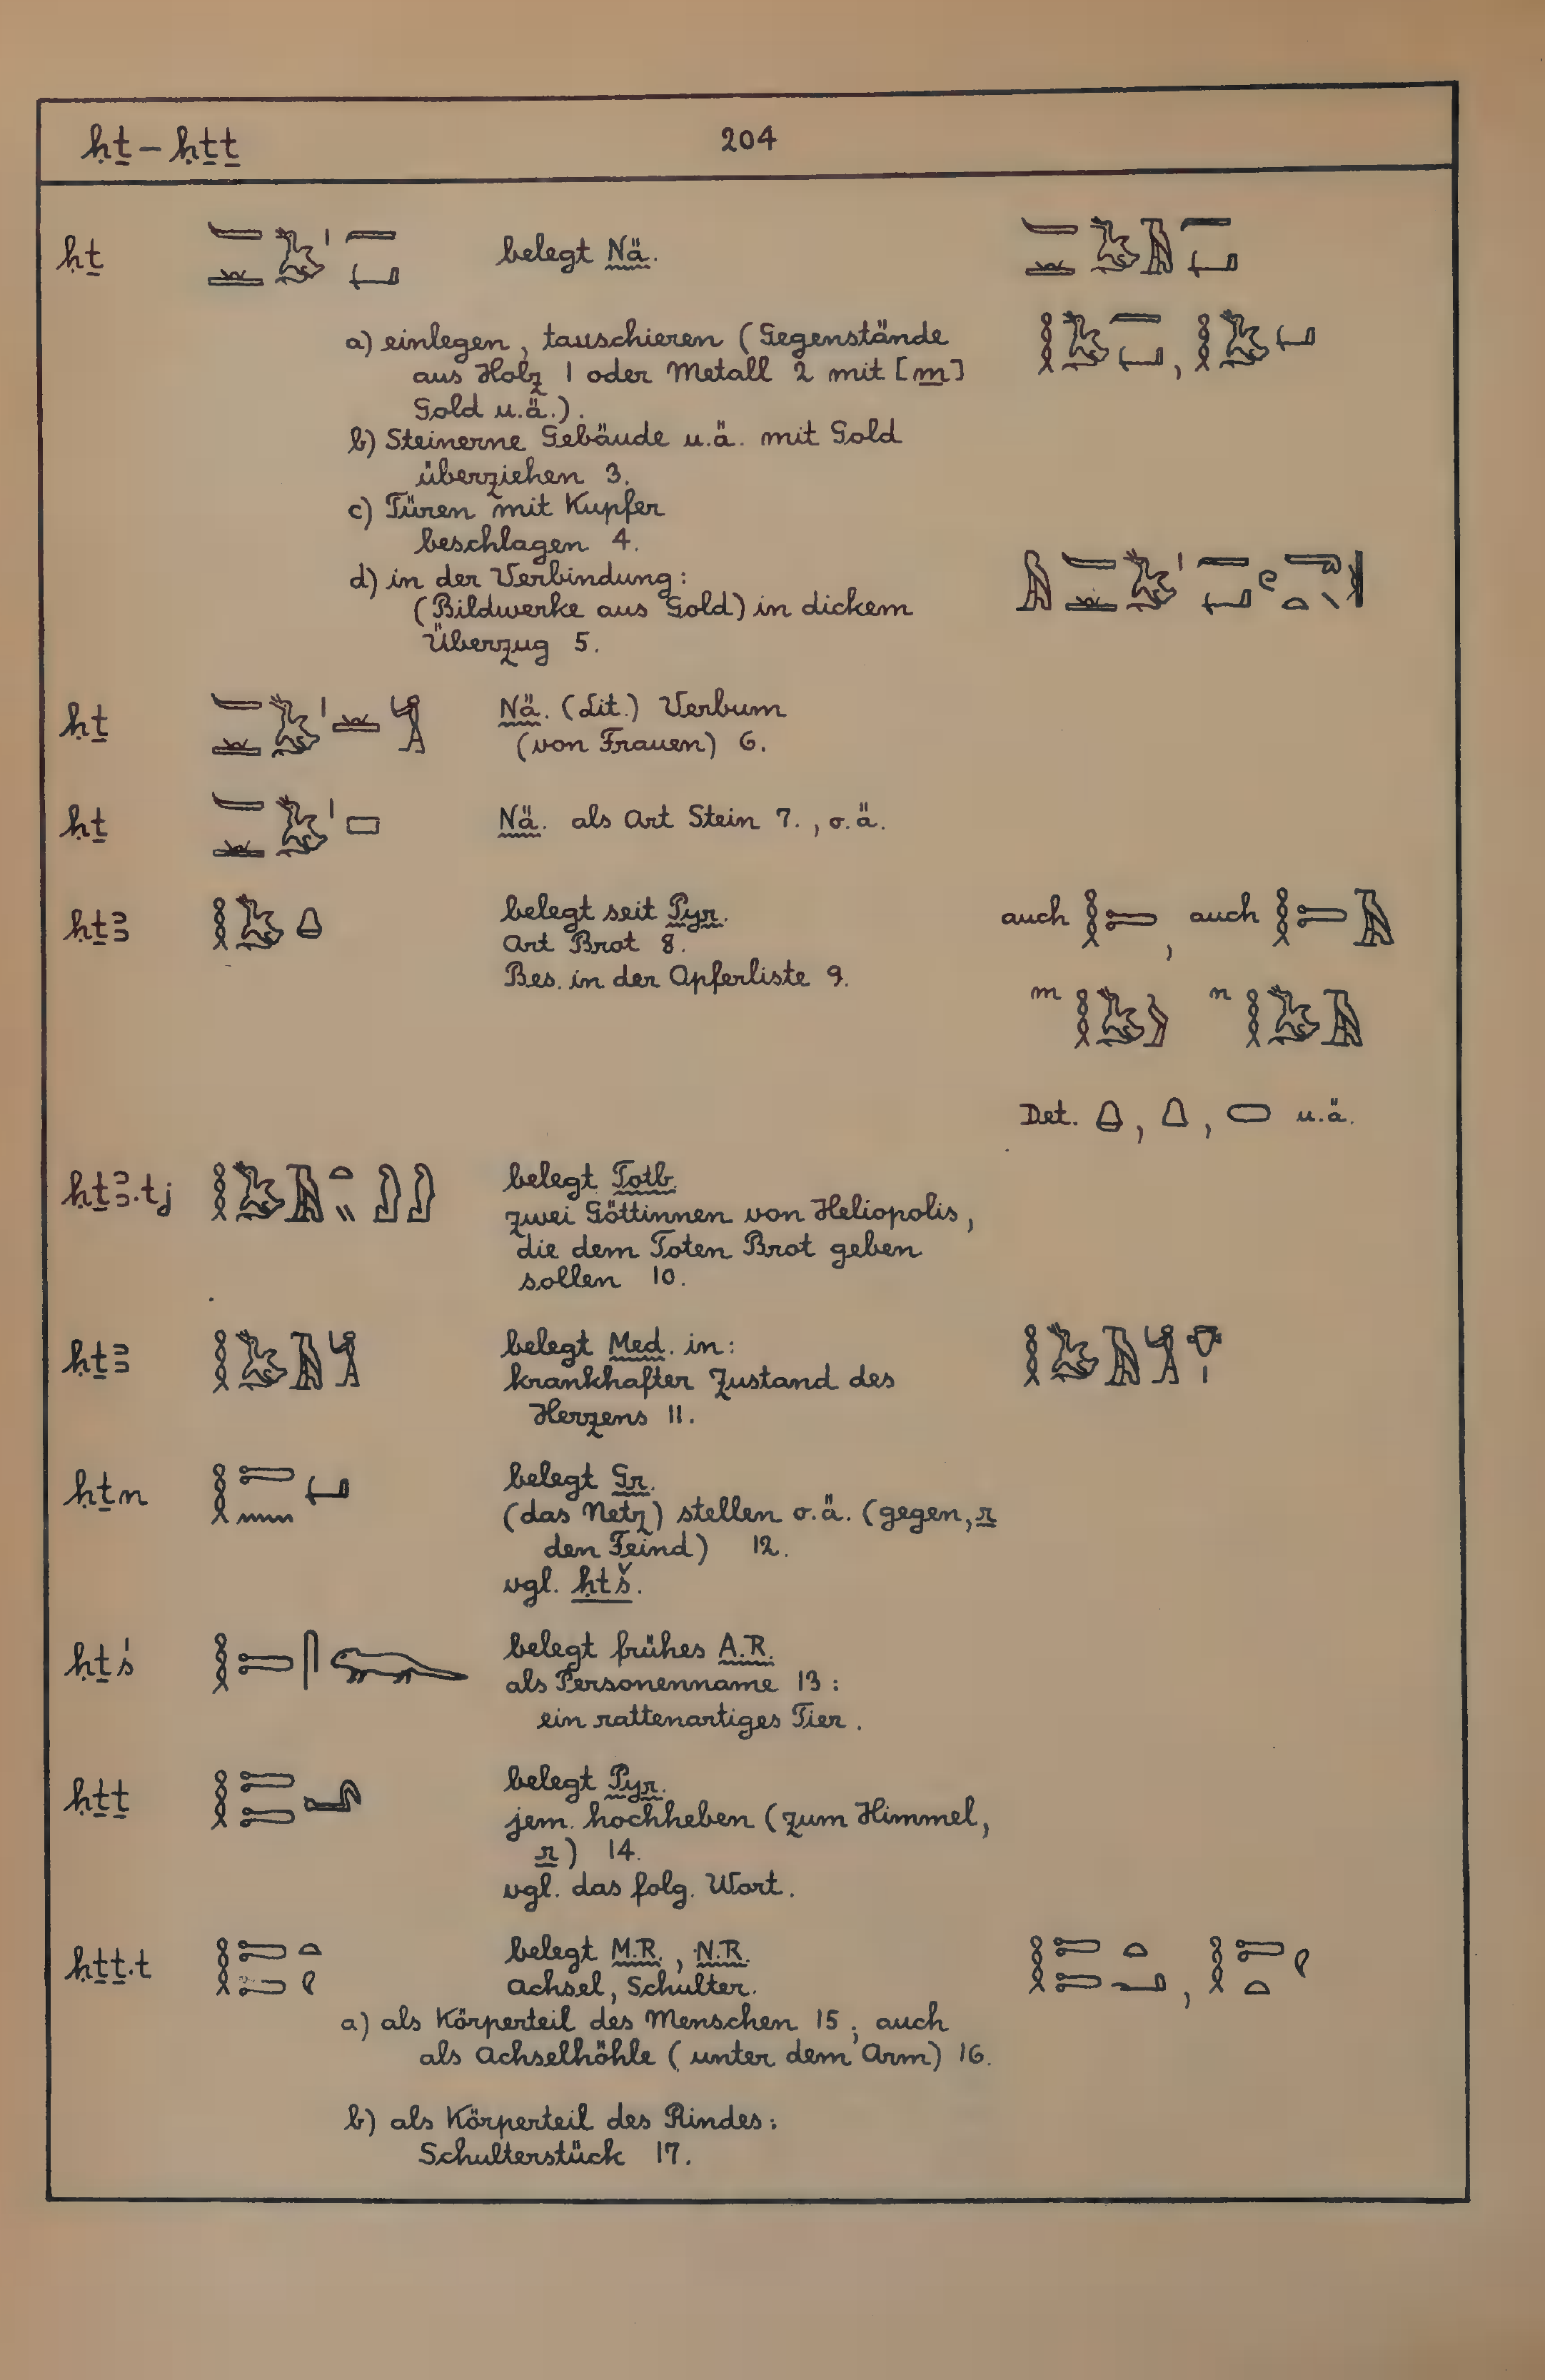 ḥṯ – ḥṯṯ 204
ḥṯ belegt Nä.
a) einlegen, tauschieren (Gegenstände
aus Holz 1 oder Metall 2 mit [m]
Gold u.ä.).
b) Steinerne Gebäude u.ä. mit Gold
überziehen 3.
c) Türen mit Kupfer
beschlagen 4.
d) in der Verbindung:
(Bildwerke aus Gold) in dickem
Überzug 5.
ḥṯ Nä. (Lit.) Verbum
(von Frauen) 6.
ḥṯ Nä. als Art Stein 7., o.ä.
ḥṯꜣ belegt seit Pyr. auch , auch
Art Brot 8.
Bes. in der Opferliste 9.
m n
Det. , , u.ä.
ḥṯꜣ.tj belegt Totb.
zwei Göttinnen von Heliopolis,
die dem Toten Brot geben
sollen 10.
ḥṯꜣ belegt Med. in:
krankhafter Zustand des
Herzens 11.
ḥṯn belegt Gr.
(das Netz) stellen o.ä. (gegen, r
den Feind) 12.
vgl. ḥtš.
ḥṯś belegt frühes A.R.
als Personenname 13:
ein rattenartiges Tier.
ḥṯṯ belegt Pyr.
jem. hochheben (zum Himmel,
r) 14.
vgl. das folg. Wort.
ḥṯṯ.t belegt M.R., N.R.
Achsel, Schulter.
a) als Körperteil des Menschen 15; auch
als Achselhöhle (unter dem Arm) 16.
b) als Körperteil des Rindes:
Schulterstück 17.